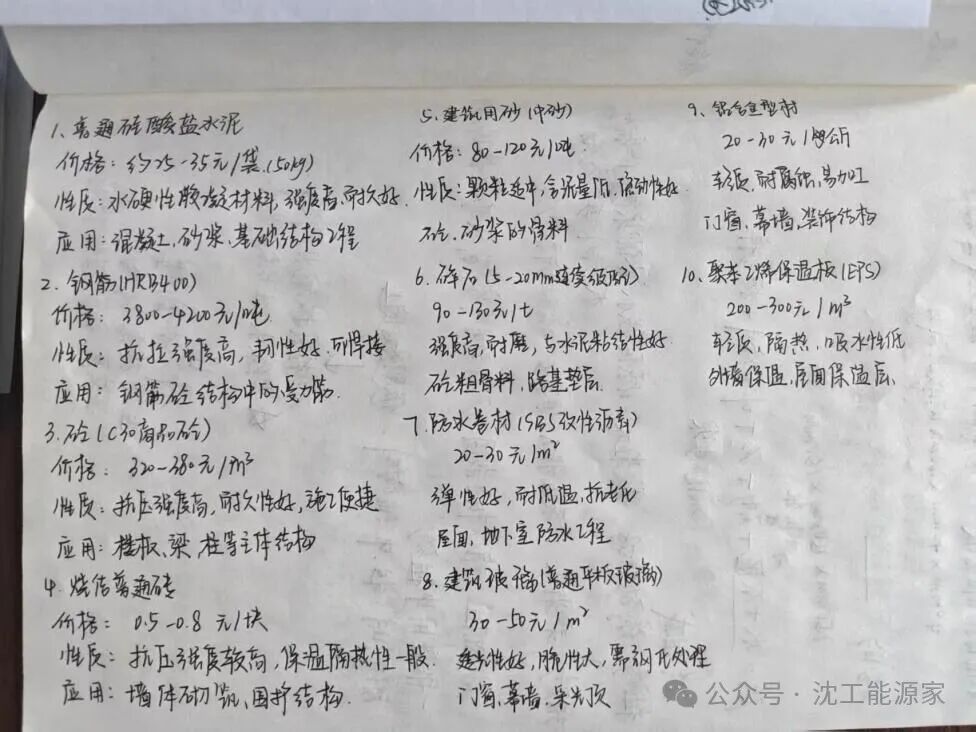 1、普通硅酸盐水泥
价格：约25-35元/袋(50kg)
性质：水硬性胶凝材料,强度高,耐久好.
应用：混凝土、砂浆、基础结构工程
2、钢筋(HRB400)
价格：3800-4200元/吨
性质：抗拉强度高，韧性好.可焊接
应用：钢筋砼结构中的受力筋.
3.砼(C30商品砼)
价格：320-380元/m³
性质：抗压强度高,耐久性好,施工便捷
应用：楼板、梁、柱等主体结构
4.烧结普通砖
价格：0.5-0.8元/块
性质：抗压强度较高,保温隔热性一般.
应用：墙体砌筑,围护结构.
5.建筑用砂(中砂)
价格：80-120元/吨
性质：颗粒适中,含泥量低,流动性好
砼、砂浆的骨料
6.碎石(5-20mm连续级配)
90-130元/t
强度高,耐磨,与水泥粘结性好.
砼粗骨料,路基垫层.
7.防水卷材(SBS改性沥青)
20-30元/m²
弹性好,耐低温,抗老化
屋面、地下室防水工程
8.建筑玻璃(普通平板玻璃)
30-50元/m²
透光性好,脆性大,需钢化处理
门窗、幕墙、采光顶
9、铝合金型材
20-30元/公斤
轻质、耐腐蚀、易加工
门窗、幕墙、装饰结构
10、聚苯乙烯保温板(EPS)
200-300元/m³
轻质、隔热、吸水性低
外墙保温、屋面保温层.
公众号·沈工能源家